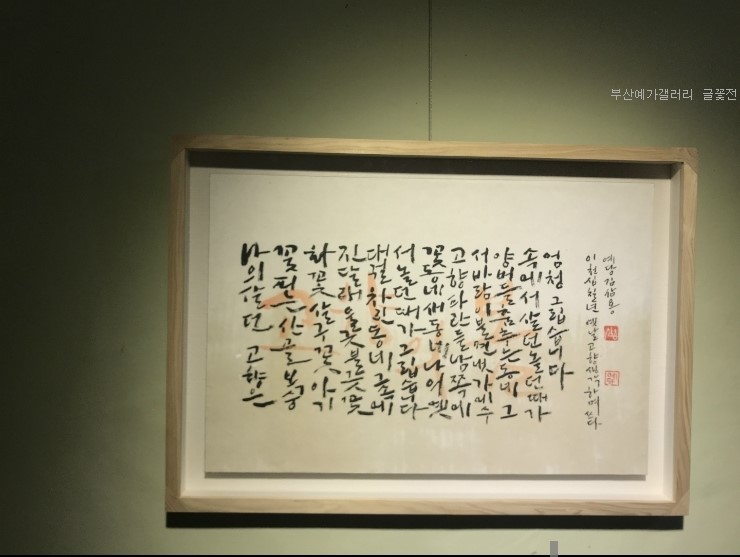 부산예가갤러리 글꽃전
나의살던 고향은
꽃피는산골 복숭
화꽃살구꽃 아기
진달래울긋불긋꽃
대궐차린동네 그속에
서놀던때가그립습니다
꽃동네새동네나의옛
고향파란들남쪽에
서바람이불면냇가에수
양버들춤추는동네 그
속에서살던놀던때가
엄청그립습니다
이천십칠년 옛날고향생각하며 쓰다
예당김삼용